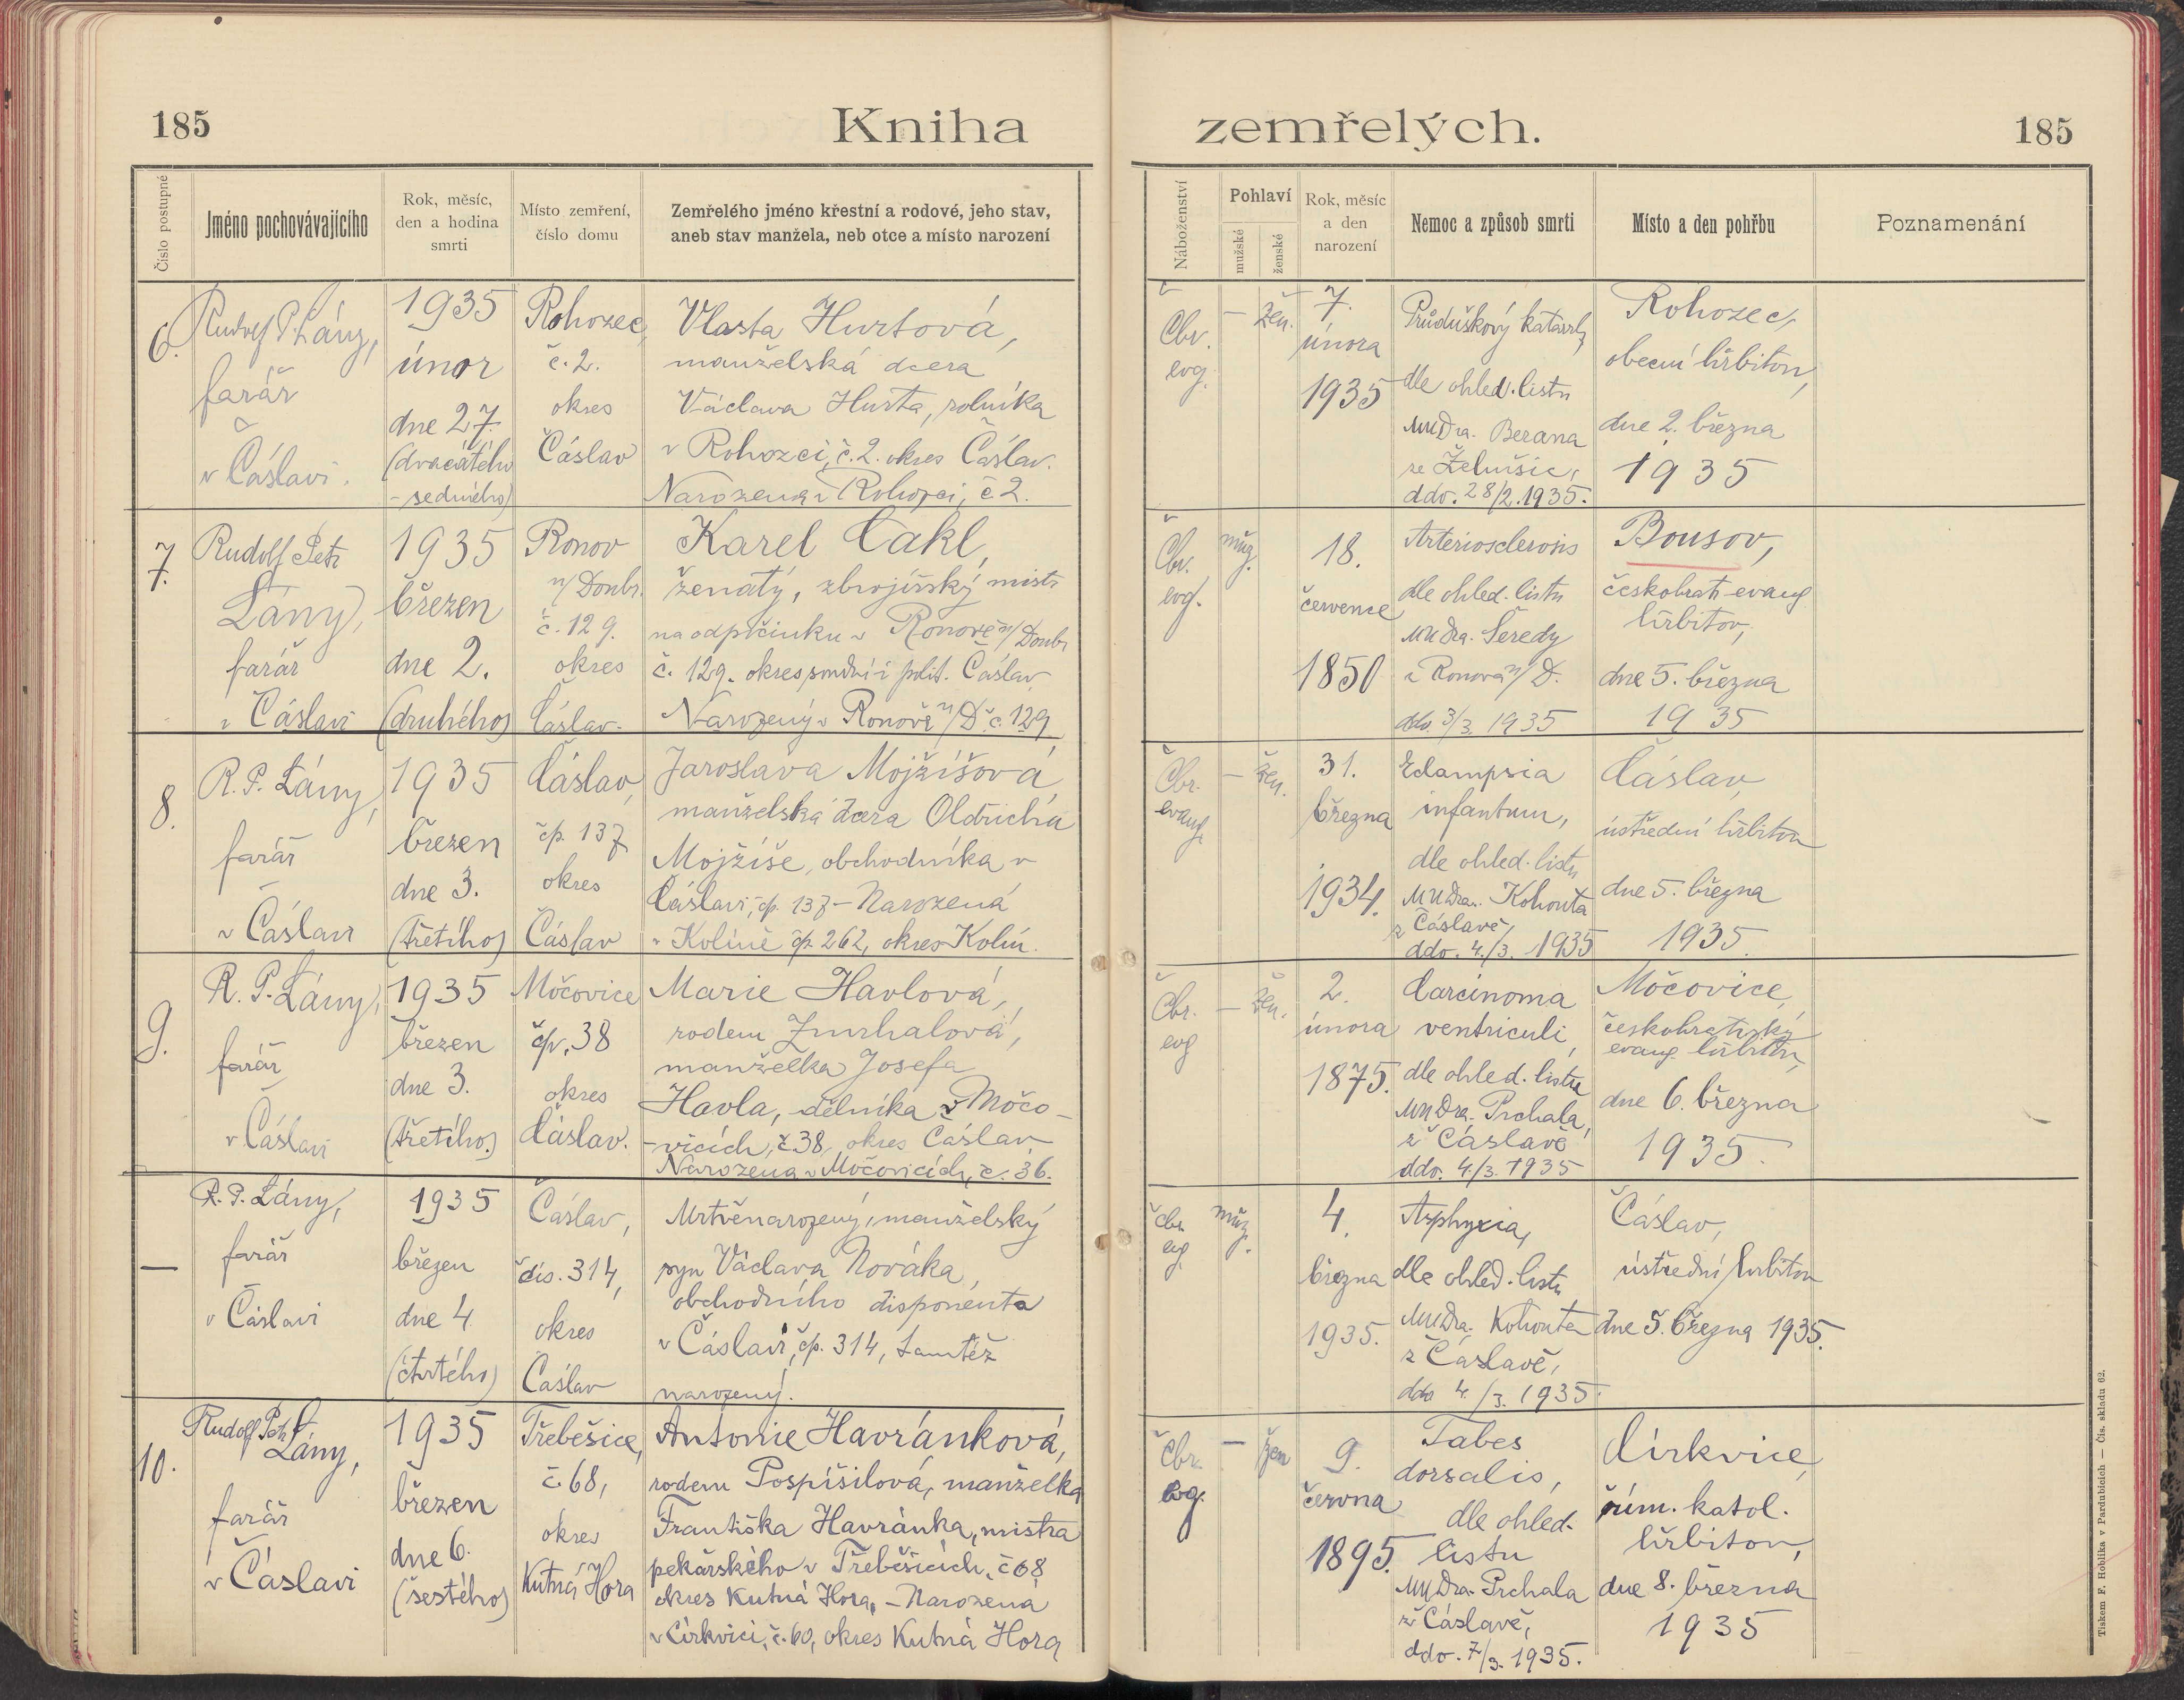 185
Kniha
Číslo postupné
Jméno pochovávajícího
Rok, měsíc,
den a hodina
smrti
Místo zemření,
číslo domu
Zemřelého jméno křestní a rodové, jeho stav,
aneb stav manžela, neb otce a místo narození
6.
Rudolf P. Lány,
farář
v Čáslavi.
1935
únor
dne 27.
(dvacátého
-sedmého)
Rohozec,
č. 2.
okres
Čáslav
Vlasta Hurtová,
manželská dcera
Václava Hurta, rolníka
v Rohozci, č. 2. okres Čáslav.
Narozena v Rohozci, č 2.
7.
Rudolf Petr
Lány,
farář
v Čáslavi
1935
březen
dne 2.
(druhého)
Ronov
n/Doubr.
č. 129.
okres
Čáslav.
Karel Cakl,
ženatý, zbrojířský mistr
na odpočinku v Ronově n/Doubr
č. 129. okres soudní i polit. Čáslav
Narozený v Ronově n/D č. 129
8.
R. P. Lány,
farář
v Čáslavi
1935
březen
dne 3.
(třetího)
Čáslav,
čp. 137
okres
Čáslav
Jaroslava Mojžíšová,
manželská dcera Oldřicha
Mojžíše, obchodníka v
Čáslavi, čp. 137 - Narozená
v Kolíně čp. 262, okres Kolín.
9.
R. P. Lány,
farář
v Čáslavi
1935
březen
dne 3.
(třetího.)
Močovice
čp. 38
okres
Čáslav.
Marie Havlová,
rodem Zmrhalová,
manželka Josefa
Havla, dělníka v Močo-
-vicích, č. 38, okres Čáslav
Narozena v Močovicích, č. 36.
—
R. P. Lány,
farář
v Čáslavi
1935
březen
dne 4.
(čtvrtého)
Čáslav,
čís. 314,
okres
Čáslav
Mrtvěnarozený, manželský
syn Václava Nováka,
obchodního disponenta
v Čáslavi, čp. 314, tamtéž
narozený.
10.
Rudolf Petr
Lány,
farář
v Čáslavi
1935
březen
dne 6.
(šestého)
Třebešice,
č. 68,
okres
Kutná Hora
Antonie Havránková,
rodem Pospíšilová, manželka
Františka Havránka, mistra
pekařského v Třebešicích, č 68
okres Kutná Hora, - Narozená
v Církvici, č. 60, okres Kutná Hora
zemřelých.
185
Náboženství
Pohlaví
mužské
ženské
Rok, měsíc
a den
narození
Nemoc a způsob smrti
Místo a den pohřbu
Poznamenání
Čbr.
evg.
—
žen.
7.
února
1935
Průduškový katarrh,
dle ohled. listu
MUDra. Berana
ze Žehušic,
ddo. 28/2. 1935.
Rohozec,
obecní hřbitov,
dne 2. března
1935
Čbr.
evg.
muž.
18.
července
1850
Arteriosclerosis
dle ohled. listu
MUDra. Šeredy
z Ronova n/D.
ddo 3/3. 1935
Bousov,
českobratr. evang
hřbitov,
dne 5. března
1935
Čbr.
evang.
—
žen.
31.
března
1934.
Eclampsia
infantum,
dle ohled. listu
MUDra. Kohouta
z Čáslavě,
ddo. 4./3. 1935
Čáslav,
ústřední hřbitov
dne 5. března
1935.
Čbr.
evg
—
žen.
2.
února
1875.
Carcinoma
ventriculi,
dle ohled. listu
MUDra. Prchala,
z Čáslavě
ddo. 4./3. 1935
Močovice,
českobratrský
evang. hřbitov,
dne 6. března
1935.
Čbr.
evg.
muž.
4.
března
1935.
Asphyxia,
dle ohled. listu
MUDra. Kohouta
z Čáslavě,
ddo 4./3. 1935.
Čáslav,
ústřední hřbitov
dne 5. března 1935.
Čbr.
evg.
—
žen
9.
června
1895.
Tabes
dorsalis,
dle ohled.
listu
MUDra. Prchala
z Čáslavě,
ddo. 7/3. 1935.
Církvice,
řím. katol.
hřbitov,
dne 8. března
1935
Tiskem F. Hoblíka v Pardubicích — Čís. skladu 62.